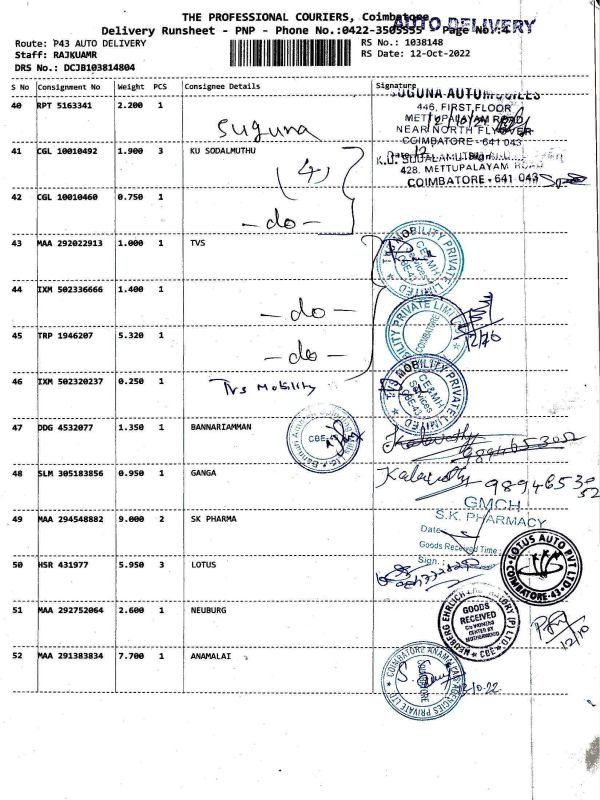 THE PROFESSIONAL COURIERS, Coimbatore
AUTO DELIVERY
Delivery Runsheet - PNP - Phone No.:0422-3505555 Page No.:4
Route: P43 AUTO DELIVERY
RS No.: 1038148
Staff: RAJKUAMR
RS Date: 12-Oct-2022
DRS No.: DCJB103814804
S No Consignment No Weight PCS Consignee Details Signature
40 RPT 5163341 2.200 1
suguna
SUGUNA AUTOMOBILES
446, FIRST FLOOR
METTUPALAYAM ROAD
NEAR NORTH FLYOVER
COIMBATORE - 641 043
41 CGL 10010492 1.900 3 KU SODALMUTHU
(4)
K.U. SUDALAMUTHU
428. METTUPALAYAM ROAD
COIMBATORE - 641 043
42 CGL 10010460 0.750 1
- do -
43 MAA 292022913 1.000 1 TVS
MOBILITY PRIVATE LIMITED
CBE-43
44 IXM 502336666 1.400 1
- do -
MOBILITY PRIVATE LIMI
COIMBATORE
45 TRP 1946207 5.320 1
- do -
46 IXM 502320237 0.250 1
Tvs Mobility
MOBILITY PRIVATE LIMITED
CE&MH
Services
CBE-43
47 DDG 4532077 1.350 1 BANNARIAMMAN
CBE-43
48 SLM 305183856 0.950 1 GANGA
9894653052
49 MAA 294548882 9.000 2 SK PHARMA
GMCH
S.K. PHARMACY
Date:
Goods Received Time:
Sign.:
50 HSR 431977 5.950 3 LOTUS
LOTUS AUTO PVT LTD
COIMBATORE-43
51 MAA 292752064 2.600 1 NEUBURG
NEUBERG EHRLICH LABORATORY (P) LTD
GOODS
RECEIVED
CBE
12/10
52 MAA 291383834 7.700 1 ANAMALAI
COIMBATORE ANAMALLAIS AGENCIES PRIVATE LTD
12.10.22